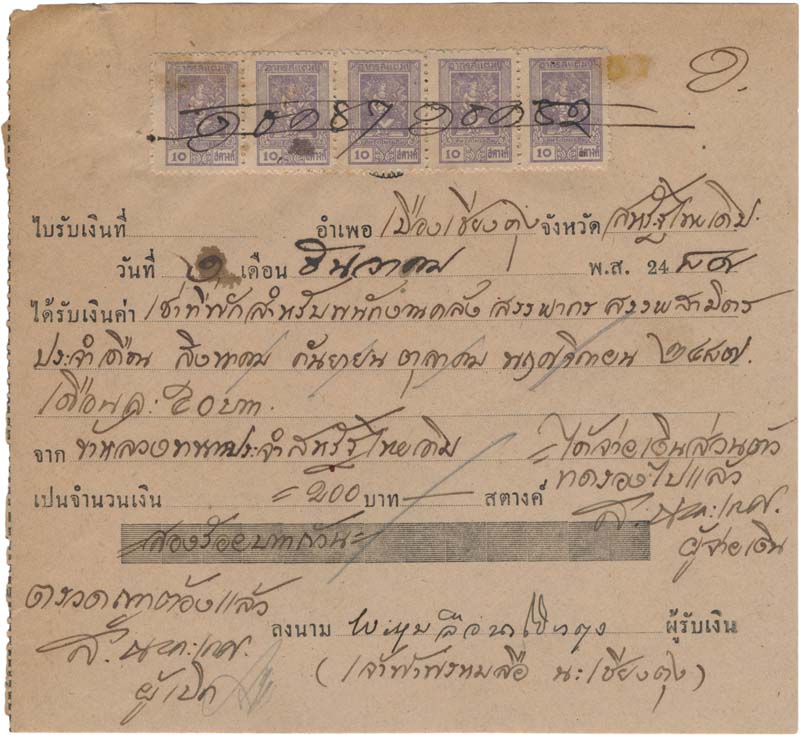 ๑.
อากรแสตมป์ อากรแสตมป์ อากรแสตมป์ อากรแสตมป์ อากรแสตมป์
10 สตางค์ 10 สตางค์ 10 สตางค์ 10 สตางค์ 10 สตางค์
ใบรับเงินที่ อำเพอ เมืองเชียงตุง จังหวัด สหรัฐไทยเดิม
วันที่ ๑ เดือน ธันวาคม พ.ส. 24๘๗
ได้รับเงินค่า เช่าที่พักสำหรับพนักงานคลัง สรรพากร สรรพสามิตร
ประจำเดือน สิงหาคม กันยายน ตุลาคม พรึสจิกายน ๒๔๘๗.
เดือนละ ๕๐ บาท.
จาก ข้าหลวงทหานประจำสหรัฐไทยเดิม
= ได้จ่ายเงินส่วนตัว
ทดรองไปแล้ว
เปนจำนวนเงิน = 200 บาท — สตางค์
ผู้จ่ายเงิน
=สองร้อยบาทถ้วน=
ตรวดถูกต้องแล้ว
ผู้เบิก
ลงนาม ผู้รับเงิน
(เจ้าฟ้าพรหมลือ นะเชียงตุง)